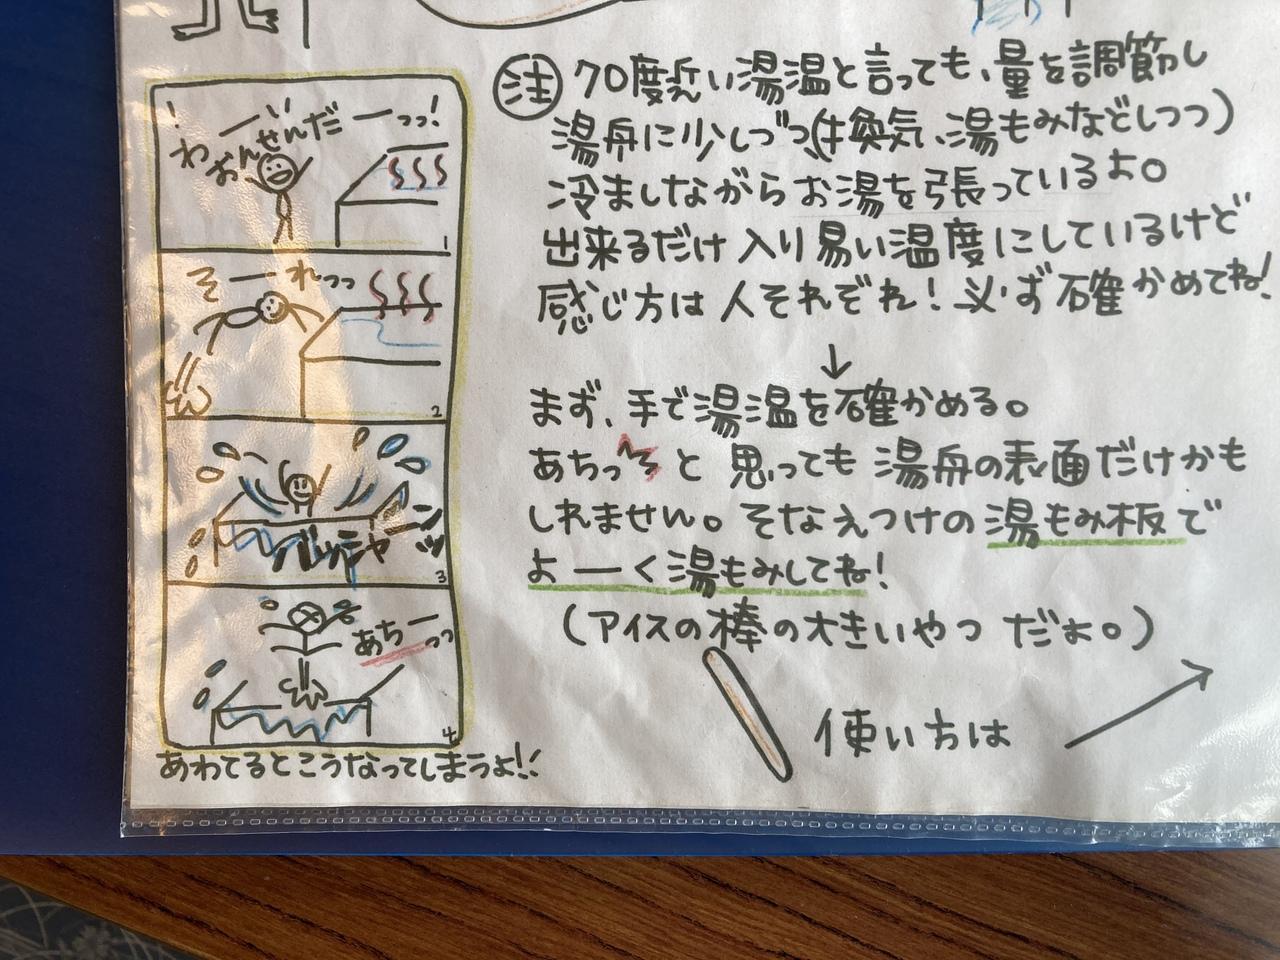 わーい!
おんせんだーっっ!
1
そーれっっ
2
バッシャーンッ
3
あちーっっ
4
あわてるとこうなってしまうよ!!
注 70度近い湯温と言っても、量を調節し
湯舟に少しづつ(換気、湯もみなどしつつ)
冷ましながらお湯を張っているよ。
出来るだけ入り易い温度にしているけど
感じ方は人それぞれ!必ず確かめてね!
↓
まず、手で湯温を確かめる。
あちっと思っても湯舟の表面だけかも
しれません。そなえつけの湯もみ板で
よーく湯もみしてね!
(アイスの棒の大きいやつだよ。)
使い方は